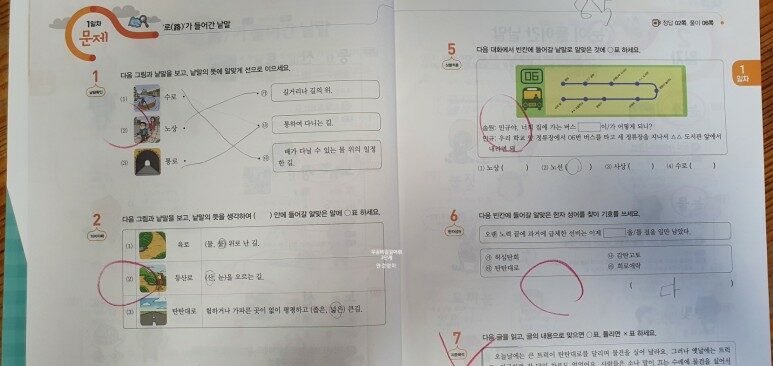 1일차
문제
'로(路)'가 들어간 낱말
1
다음 그림과 낱말을 보고, 낱말의 뜻에 알맞게 선으로 이으세요.
(1) 수로
㉮ 길거리나 길의 위.
(2) 노상
㉯ 통하여 다니는 길.
(3) 통로
㉰ 배가 다닐 수 있는 물 위의 일정한 길.
2
다음 그림과 낱말을 보고, 낱말의 뜻을 생각하여 ( ) 안에 들어갈 알맞은 말에 ○표 하세요.
(1) 육로 (물, 뭍) 위로 난 길.
(2) 등산로 (산, 눈)을 오르는 길.
(3) 탄탄대로 험하거나 가파른 곳이 없이 평평하고 (좁은, 넓은) 큰길.
정답 02쪽, 풀이 06쪽
5
다음 대화에서 빈칸에 들어갈 낱말로 알맞은 것에 ○표 하세요.
06
솔원: 민규야, 너희 집에 가는 버스 이/가 어떻게 되니?
민규: 우리 학교 앞 정류장에서 06번 버스를 타고 세 정류장을 지나서 △△ 도서관 앞에서
내리면 돼.
(1) 노상 ( ) (2) 노선 ( ) (3) 사상 ( ) (4) 수로 ( )
6
다음 빈칸에 들어갈 알맞은 한자 성어를 찾아 기호를 쓰세요.
오랜 노력 끝에 과거에 급제한 선비는 이제 을/를 걸을 일만 남았다.
㉮ 허심탄회 ㉯ 감탄고토
㉰ 탄탄대로 ㉱ 희로애락
7
다음 글을 읽고, 글의 내용으로 맞으면 ○표, 틀리면 ×표 하세요.
오늘날에는 큰 트럭이 탄탄대로를 달리며 물건을 실어 날라요. 그러나 옛날에는 트럭
1
일차